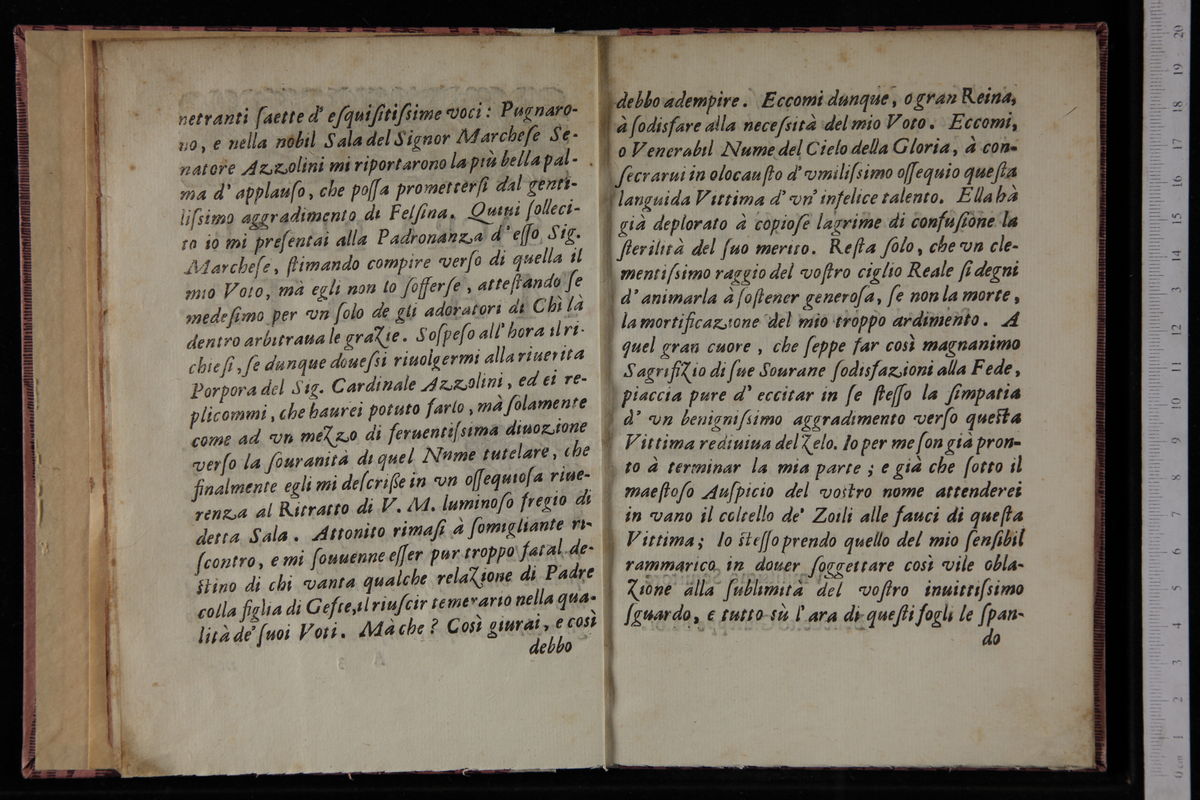 netranti ſaette d' eſquiſitiſsime voci: Pugnaro-
no, e nella nobil Sala del Signor Marcheſe Se-
natore Azzolini mi riportarono la più bella pal-
ma d' applauſo, che poſſa prometterſi dal genti-
liſsimo aggradimento di Felſina. Quiui ſolleci-
to io mi preſentai alla Padronanza d' eſſo Sig.
Marcheſe, ſtimando compire verſo di quella il
mio Voto, mà egli non lo ſofferſe, atteſtando ſe
medeſimo per vn ſolo de gli adoratori di Chi là
dentro arbitraua le grazie. Soſpeſo all' hora il ri-
chieſi, ſe dunque doueſſi riuolgermi alla riuerita
Porpora del Sig. Cardinale Azzolini, ed ei re-
plicommi, che haurei potuto farlo, mà ſolamente
come ad vn mezzo di feruentiſsima diuozione
verſo la ſouranità di quel Nume tutelare, che
finalmente egli mi deſcriße in vn oſſequioſa riue-
renza al Ritratto di V. M. luminoſo fregio di
detta Sala. Attonito rimaſi à ſomigliante ri-
ſcontro, e mi ſouuenne eſſer pur troppo fatal de-
ſtino di chi vanta qualche relazione di Padre
colla figlia di Gefte, il riuſcir temerario nella qua-
lità de' ſuoi Voti. Mà che? Così giurai, e così
debbo
debbo adempire. Eccomi dunque, o gran Reina,
à ſodisfare alla neceſsità del mio Voto. Eccomi,
o Venerabil Nume del Cielo della Gloria, à con-
ſecrarui in olocauſto d' vmiliſsimo oſſequio queſta
languida Vittima d' vn' infelice talento. Ella hà
già deplorato à copioſe lagrime di confuſione la
ſterilità del ſuo merito. Reſta ſolo, che vn cle-
mentiſsimo raggio del voſtro ciglio Reale ſi degni
d' animarla à ſoſtener generoſa, ſe non la morte,
la mortificazione del mio troppo ardimento. A
quel gran cuore, che ſeppe far così magnanimo
Sagrifizio di ſue Sourane ſodisfazioni alla Fede,
piaccia pure d' eccitar in ſe ſteſſo la ſimpatia
d' vn benigniſsimo aggradimento verſo queſta
Vittima rediuiua del zelo. Io per me ſon già pron-
to à terminar la mia parte; e già che ſotto il
maeſtoſo Auſpicio del voſtro nome attenderei
in vano il coltello de' Zoili alle fauci di queſta
Vittima; Io ſteſſo prendo quello del mio ſenſibil
rammarico in douer ſoggettare così vile obla-
zione alla ſublimità del voſtro inuittiſsimo
ſguardo, e tutto sù l' ara di queſti fogli le ſpan-
do